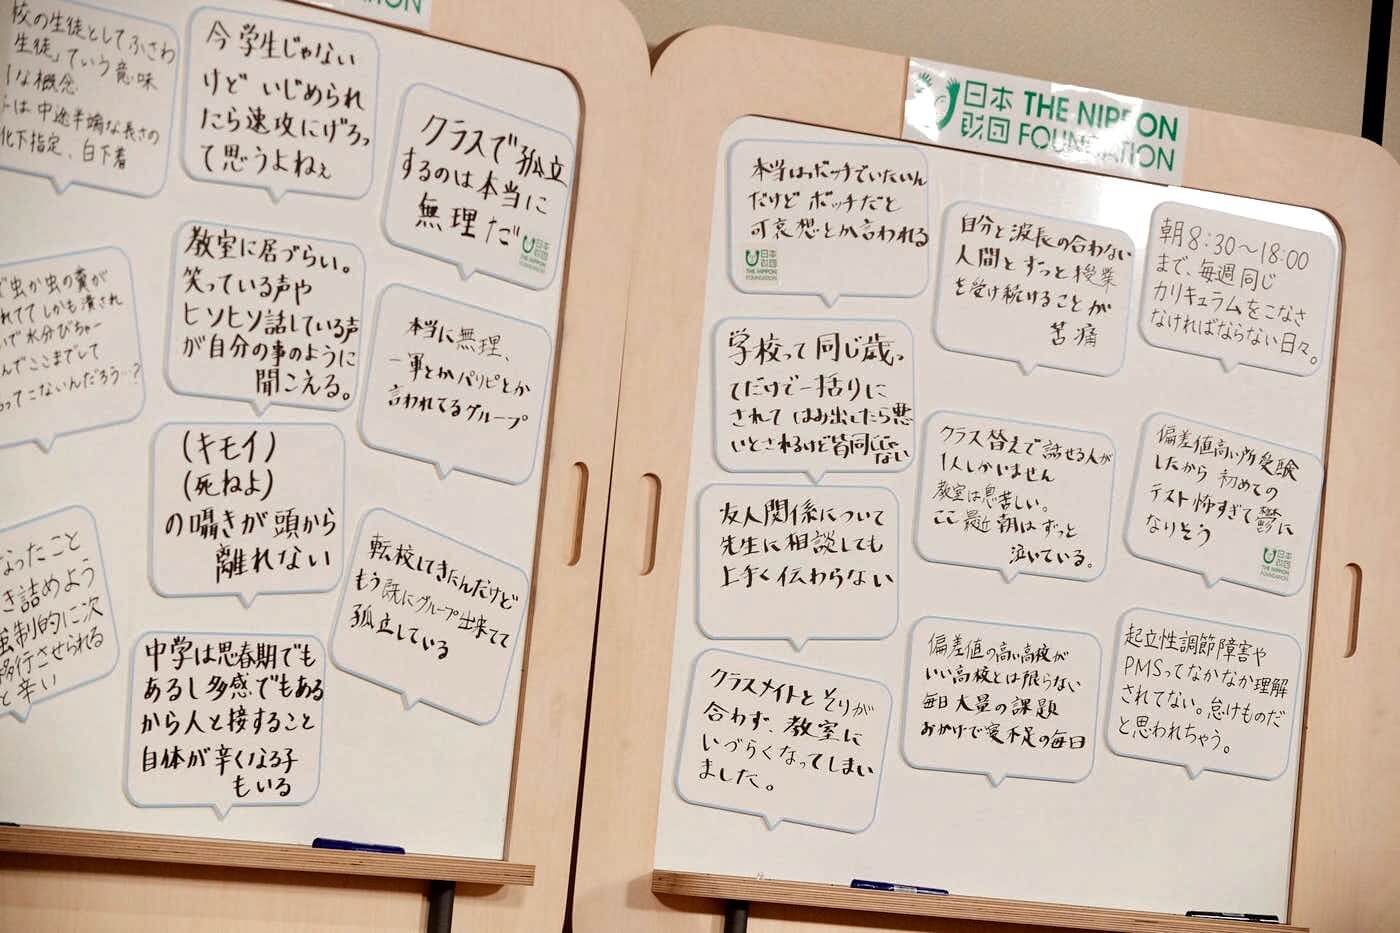 校の生徒としてふさわ
生徒」ていう意味
な概念
は中途半端な長さの
化下指定、白下着
今学生じゃない
けど いじめられ
たら速攻にげろっ
て思うよねぇ
クラスで孤立
するのは本当に
無理だ
日本
財団
THE NIPPON
FOUNDATION
で虫か虫の糞が
れてて しかも潰され
いで水分びちゃー
んでここまでして
ってこないんだろう…?
教室に居づらい。
笑っている声や
ヒソヒソ話している声
が自分の事のように
聞こえる。
本当に無理、
一軍とかパリピとか
言われてるグループ
(キモイ)
(死ねよ)
の囁きが頭から
離れない
なったこと
き詰めよう
強制的に次
移行させられる
と辛い
転校してきたんだけど
もう既にグループ出来てて
孤立している
中学は思春期でも
あるし多感でもある
から人と接すること
自体が辛くなる子
もいる
日本
財団
THE NIPPON
FOUNDATION
本当はボッチでいたいん
だけど ボッチだと
可哀想とか言われる
日本
財団
THE NIPPON
FOUNDATION
自分と波長の合わない
人間とずっと授業
を受け続けることが
苦痛
朝8:30～18:00
まで、毎週同じ
カリキュラムをこなさ
なければならない日々。
学校って同じ歳っ
てだけで一括りに
されて はみ出したら悪
いとされるけど皆同じじゃ
ない
クラス替えで話せる人が
1人しかいません
教室は息苦しい。
ここ最近朝はずっと
泣いている。
偏差値高い所受験
したから 初めての
テスト怖すぎて鬱に
なりそう
日本
財団
THE NIPPON
FOUNDATION
友人関係について
先生に相談しても
上手く伝わらない
クラスメイトとそりが
合わず、教室に
いづらくなってしまい
ました。
偏差値の高い高校が
いい高校とは限らない
毎日大量の課題
おかげで寝不足の毎日
起立性調節障害や
PMSってなかなか理解
されてない。怠けものだ
と思われちゃう。